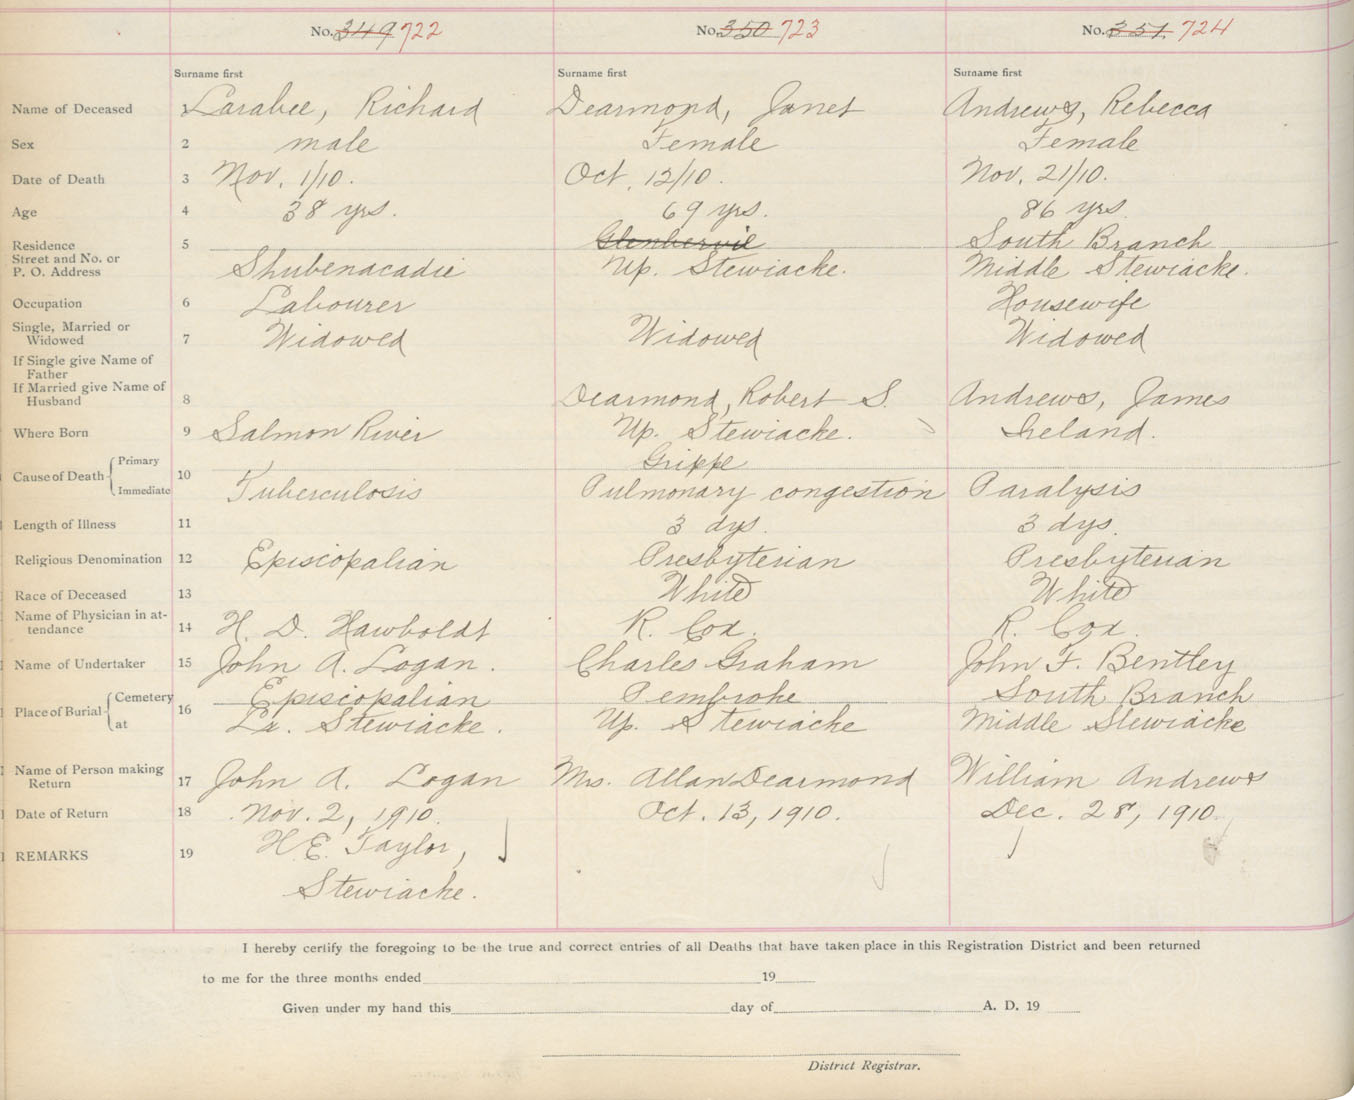 No. 349 722 No. 350 723 No. 351. 724
Surname first Surname first Surname first
Name of Deceased 1 Larabee, Richard Dearmond, Janet Andrews, Rebecca
Sex 2 male Female Female
Date of Death 3 Nov. 1/10. Oct. 12/10. Nov. 21/10.
Age 4 38 yrs. 69 yrs. 86 yrs.
Residence 5 Glenbervie South Branch
Street and No. or
P. O. Address Shubenacadie Up. Stewiacke. Middle Stewiacke.
Occupation 6 Labourer Housewife
Single, Married or
Widowed 7 Widowed Widowed Widowed
If Single give Name of
Father
If Married give Name of
Husband 8 Dearmond, Robert S. Andrews, James
Where Born 9 Salmon River Up. Stewiacke. Ireland.
Cause of Death Primary 10 Grippe
Immediate Tuberculosis Pulmonary congestion Paralysis
Length of Illness 11 3 dys. 3 dys.
Religious Denomination 12 Episcopalian Presbyterian Presbyterian
Race of Deceased 13 White White
Name of Physician in at-
tendance 14 H. D. Hawboldt R. Cox. R. Cox.
Name of Undertaker 15 John A. Logan. Charles Graham John F. Bentley
Place of Burial Cemetery 16 Episcopalian Pembroke South Branch
at Lr. Stewiacke. Up. Stewiacke Middle Stewiacke
Name of Person making
Return 17 John A. Logan Mrs. Allan Dearmond William Andrews
Date of Return 18 Nov. 2, 1910. Oct. 13, 1910. Dec. 28, 1910.
REMARKS 19 H. E. Taylor,
Stewiacke.
I hereby certify the foregoing to be the true and correct entries of all Deaths that have taken place in this Registration District and been returned
to me for the three months ended 19
Given under my hand this day of A. D. 19
District Registrar.